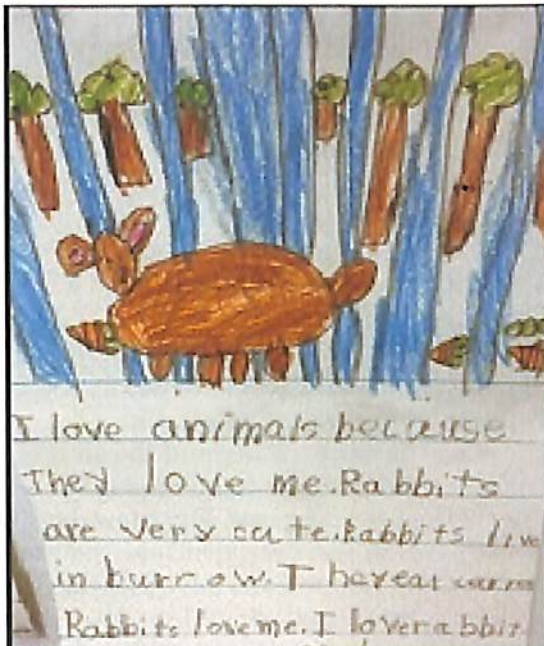 I love animals because
They love me. Rabbits
are very cute. Rabbits live
in burrow. They eat
Rabbits love me. I love rabbit